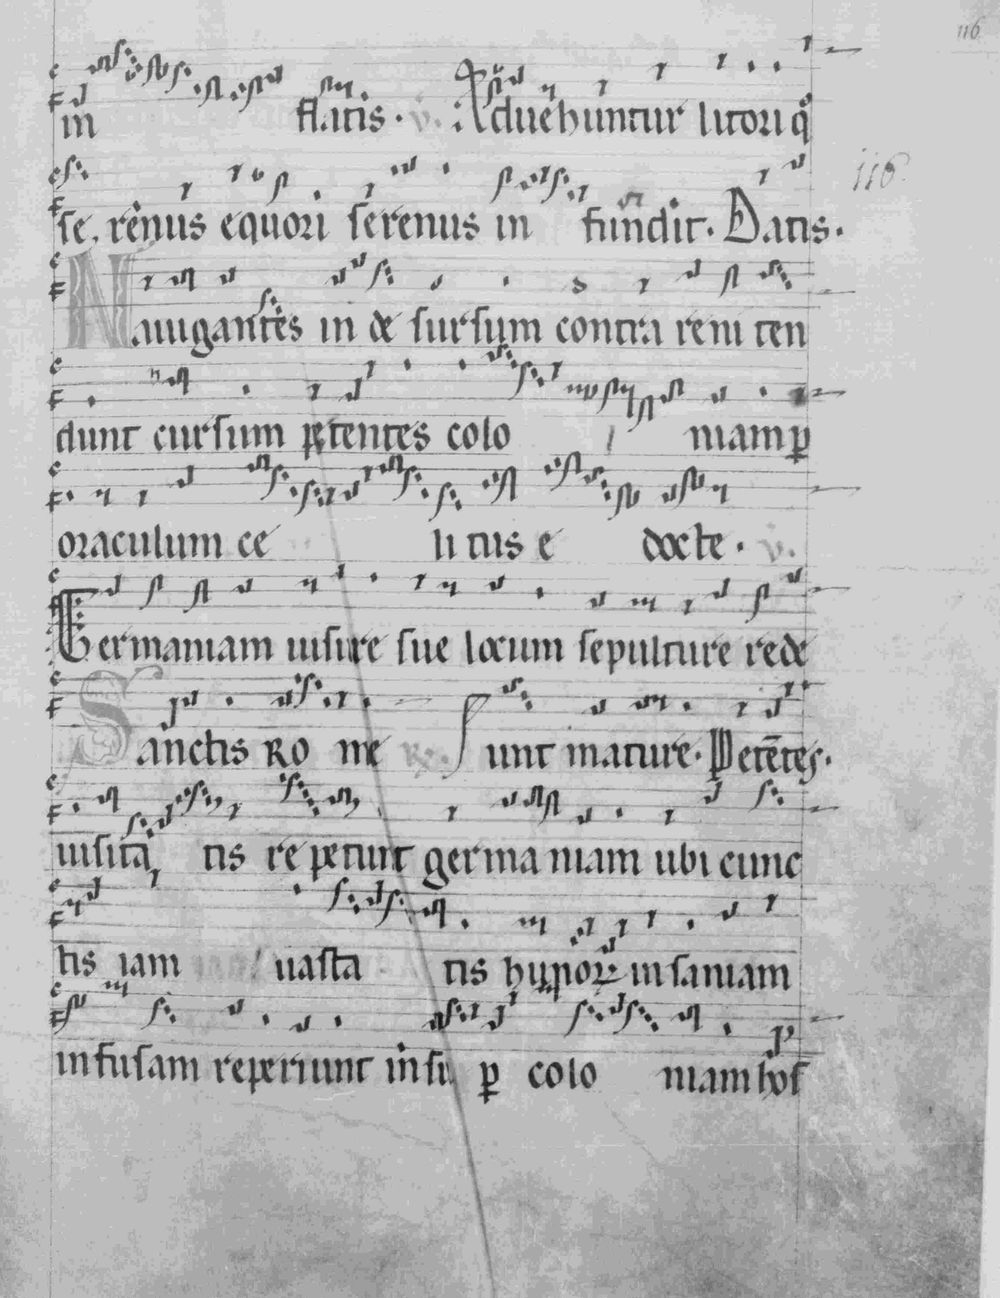 116
in flatis · v. Aduehuntur litori q
116
se, renus equori serenus in fundit. Datis.
Nauigantes in de sursum contra reni ten
dunt cursum petentes colo niam p
oraculum ce li tus e docte · v.
Germaniam uisire sue locum sepulture rede
Sanctis Ro me R. sunt mature. Petentes.
uisita tis repetunt germa niam ubi cunc
tis iam uasta tis insaniam
infusam reperiunt insu p colo niam hos